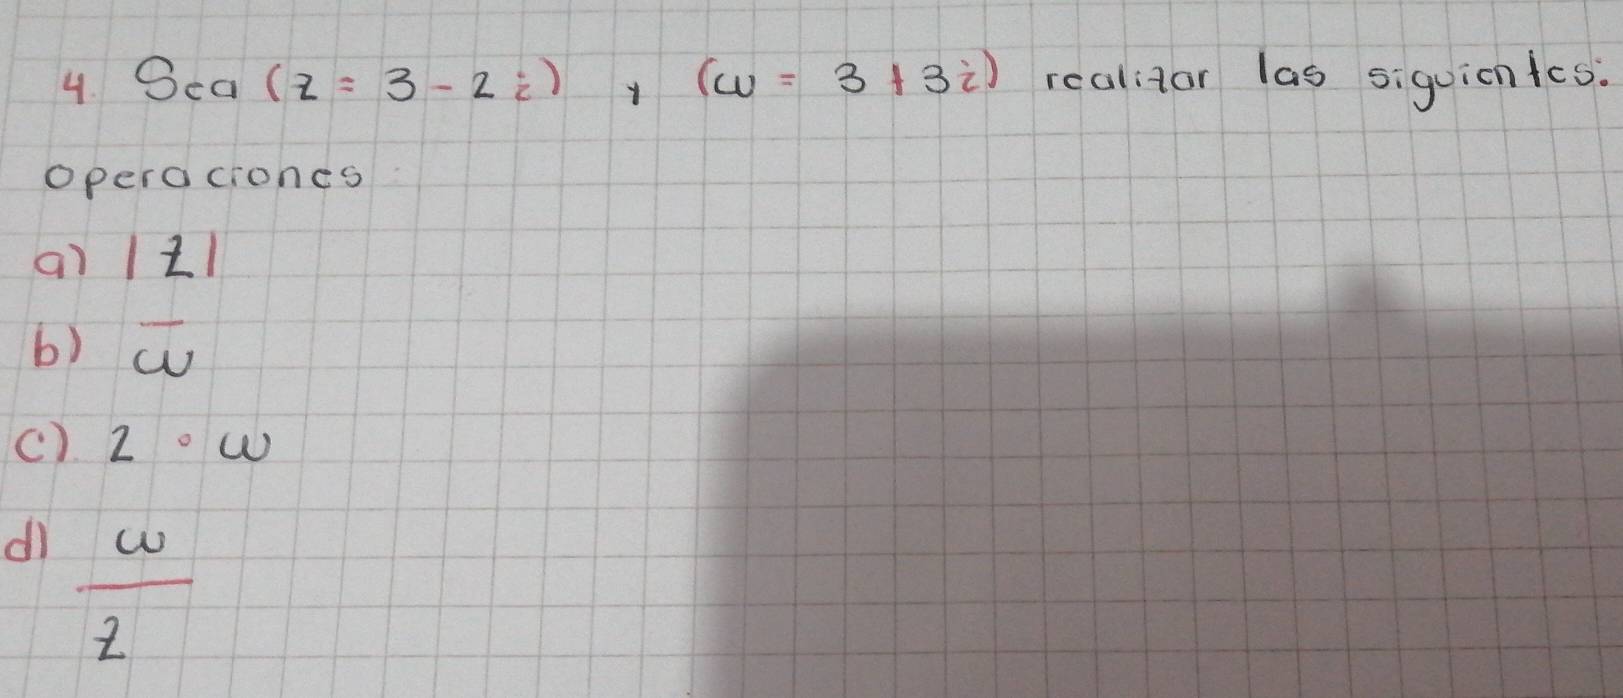 4. Sea (z = 3 - 2i) y (w = 3 + 3i) realizar las siguientes:
operaciones
a) |z|
b) w̅
c) z · w
d) w
z